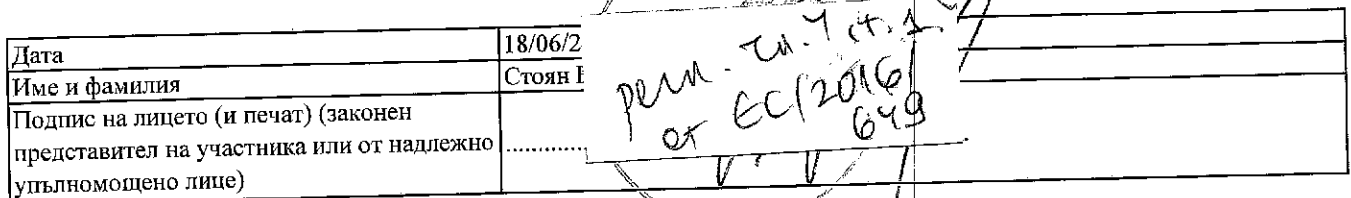 Дата 18/06/2
Име и фамилия Стоян
Подпис на лицето (и печат) (законен
представител на участника или от надлежно
упълномощено лице)
от ЕС/2016/
649